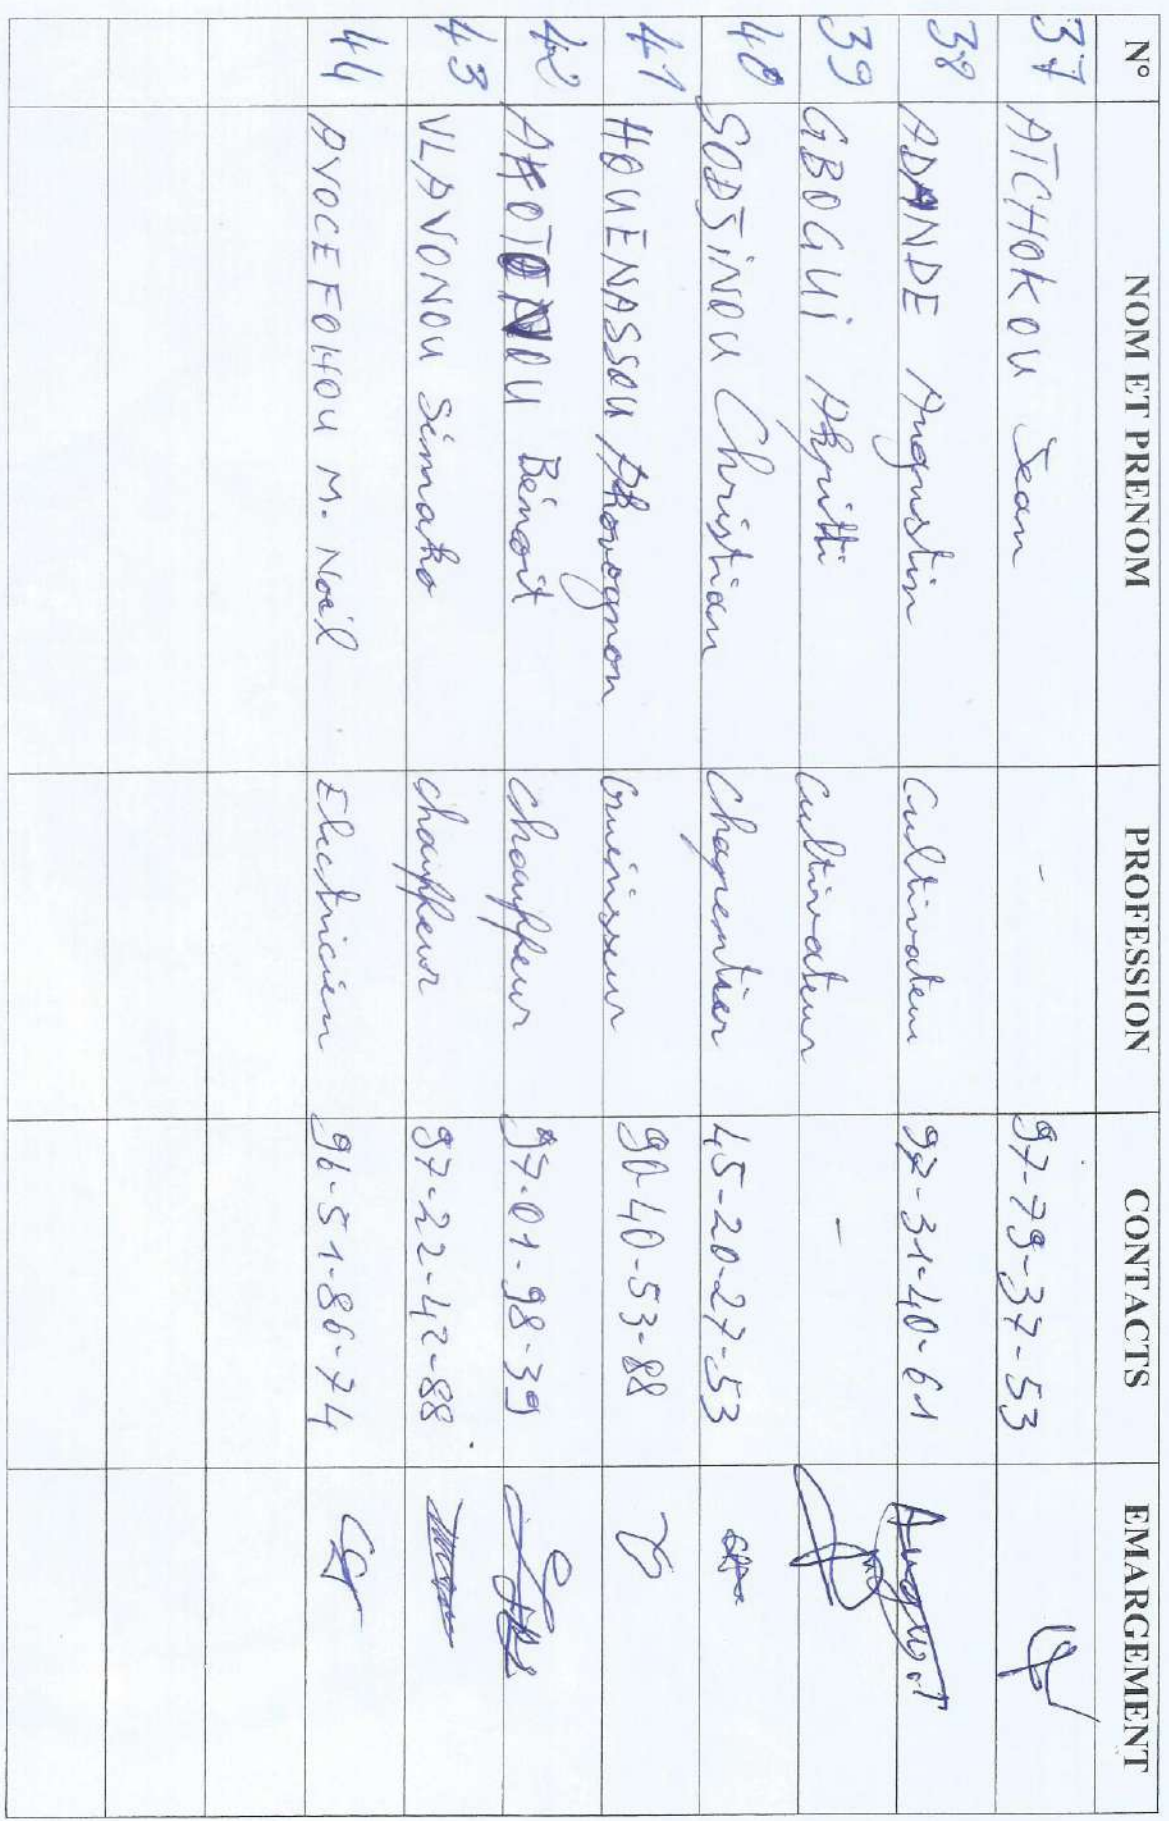 N° NOM ET PRENOM PROFESSION CONTACTS EMARGEMENT
37 ATCHOKOU Jean - 97-79-37-53
38 ADANDE Augustin Cultivateur 97-31-40-61 August
39 GBOGUi Akpitti Cultivateur -
40 SODJiNOU Christian Chapentier 45-20-27-53
41 HOUENASSOU Akovognon 90-40-53-88
42 AKOTONOU Bénoit Chauffeur 97-01-98-39
43 VLAVONOU Sèmako chauffeur 97-22-42-88
44 AVOCEFOHOU M. Noël Electricien 96-51-86-74